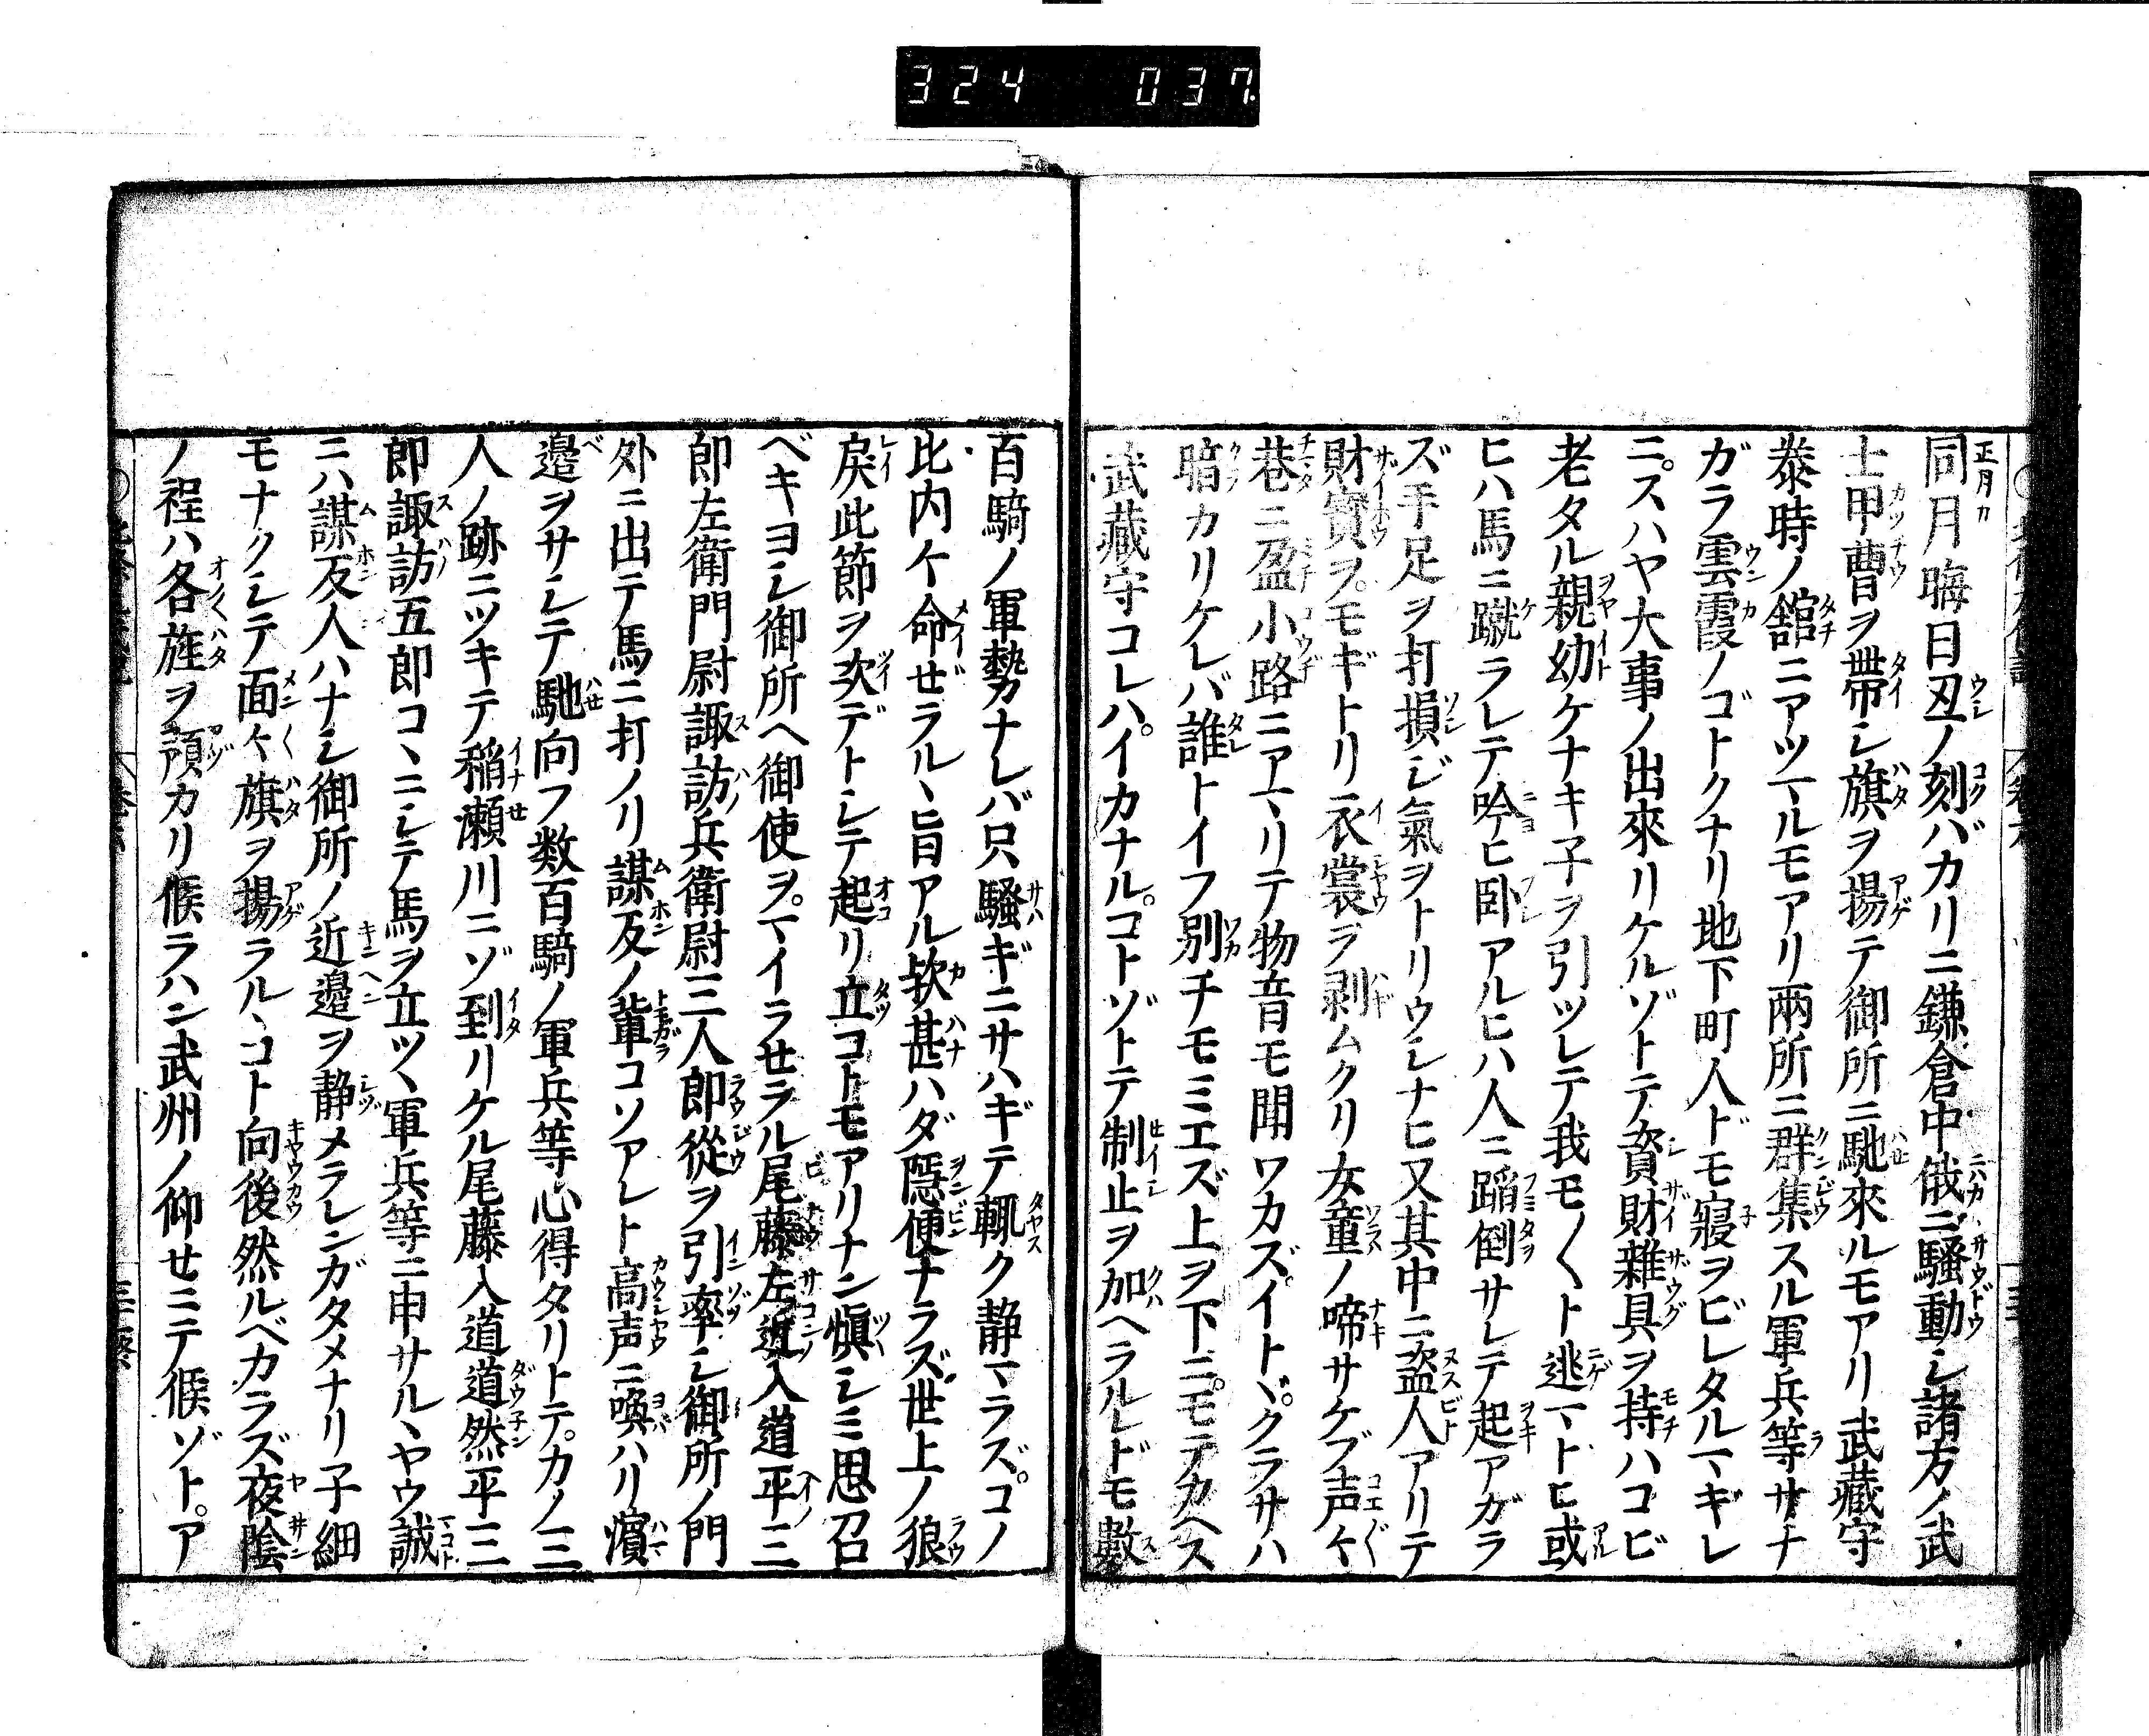 324 037
同月晦日丑ノ刻バカリニ鎌倉中俄ニ騒動シ諸方ノ武
士甲曹ヲ帯シ旗ヲ揚テ御所ニ馳來ルモアリ武藏守
泰時ノ舘ニアツマルモアリ兩所ニ群集スル軍兵等サナ
ガラ雲霞ノゴトクナリ地下町人ドモ寝ヲビレタルマギレ
ニスハヤ大事ノ出來リケルゾトテ資財雜具ヲ持ハコビ
老タル親幼ケナキ子ヲ引ツレテ我モ〱ト逃マトヒ或
ヒハ馬ニ蹴ラレテ吟ヒ卧アルヒハ人ニ蹈倒サレテ起アガラ
ズ手足ヲ打損ジ氣ヲトリウシナヒ又其中ニ盗人アリテ
財寳ヲモギトリ衣裳ヲ剥ムクリ女童ノ啼サケブ声々
巷ニ盈小路ニアマリテ物音モ聞ワカズイトヾクラサハ
暗カリケレバ誰トイフ別チモミエズ上ヲ下ニモテカヘス
武藏守コレハイカナルコトゾトテ制止ヲ加ヘラルレドモ數
百騎ノ軍勢ナレバ只騒ギニサハギテ輒ク静マラズコノ
比内々命ゼラルヽ旨アル欤甚ハダ隠便ナラズ世上ノ狼
戾此節ヲ次デトシテ起リ立コトモアリナン愼シミ思召
ベキヨシ御所ヘ御使ヲマイラセラル尾藤左近入道平三
郎左衛門尉諏訪兵衛尉三人郎從ヲ引率シ御所ノ門
外ニ出テ馬ニ打ノリ謀反ノ輩コソアレト高声ニ喚ハリ濱
邉ヲサシテ馳向フ数百騎ノ軍兵等心得タリトテカノ三
人ノ跡ニツキテ稲瀬川ニゾ到リケル尾藤入道道然平三
郎諏訪五郎コヽニシテ馬ヲ立ツヽ軍兵等ニ申サルヽヤウ誠
ニハ謀反人ハナシ御所ノ近邉ヲ静メラレンガタメナリ子細
モナクシテ面々旗ヲ揚ラルヽコト向後然ルベカラズ夜陰
ノ程ハ各旌ヲ預カリ候ラハン武州ノ仰セニテ候ゾトア